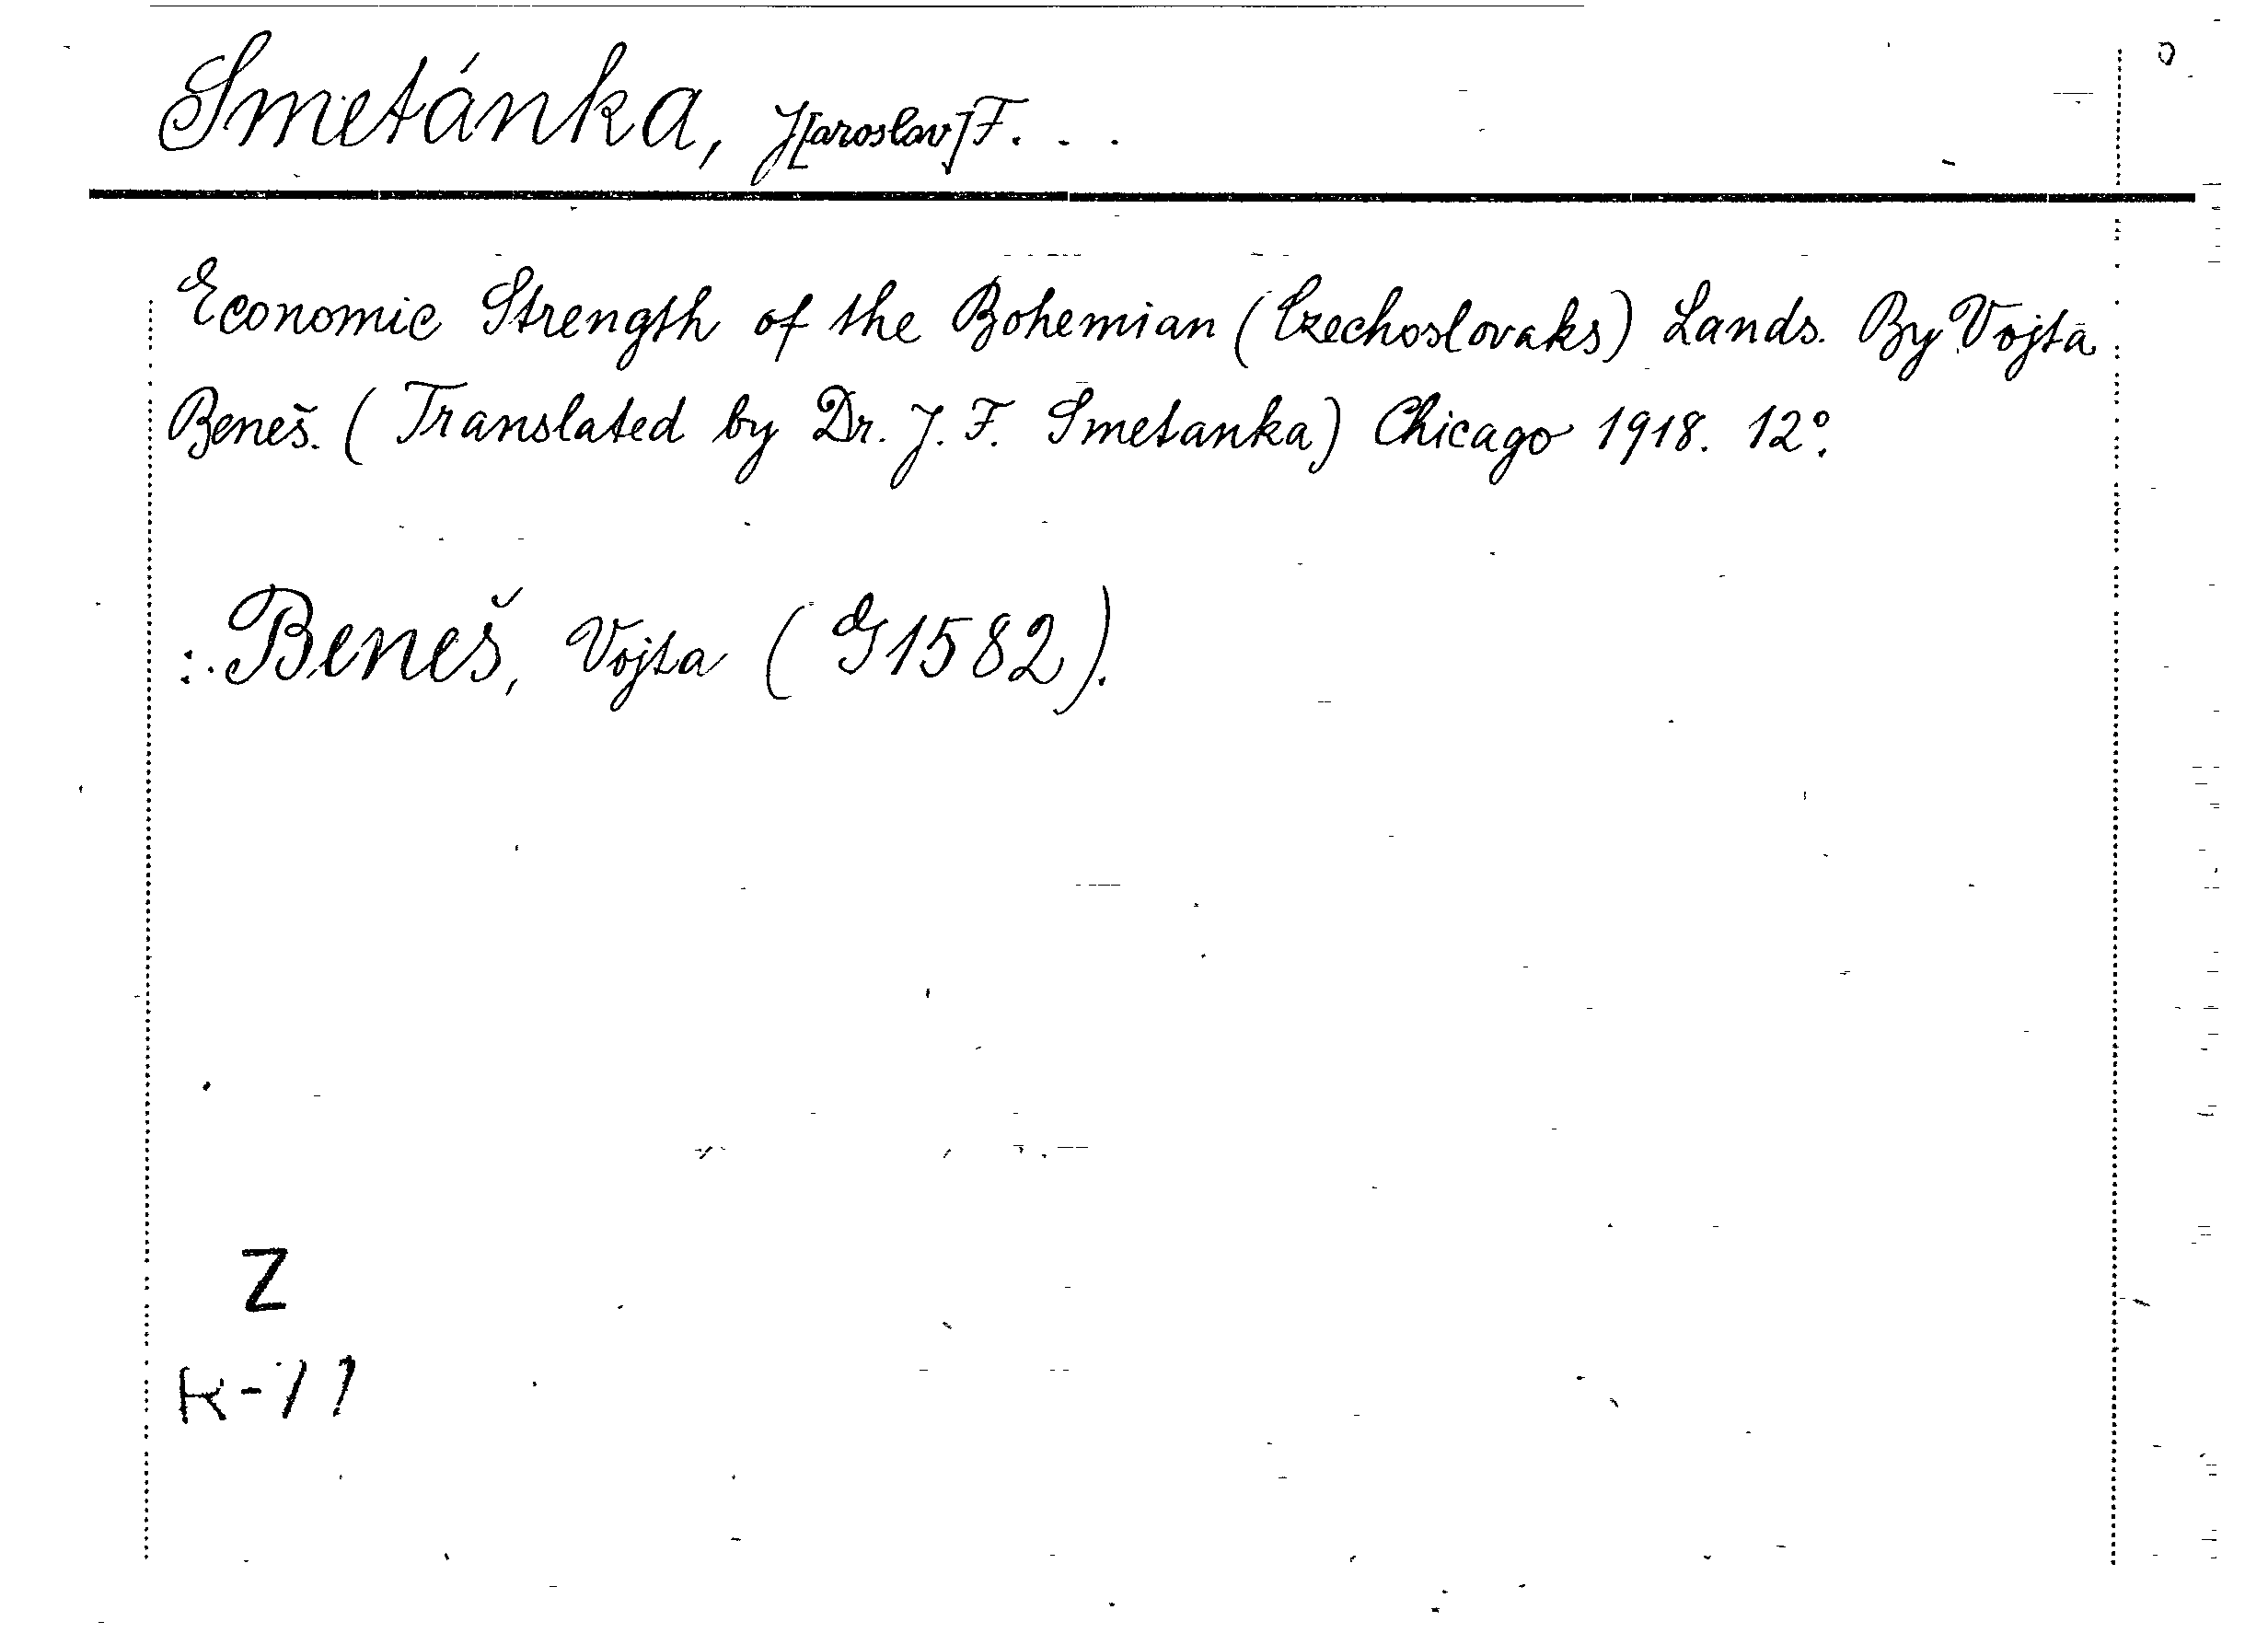 Smetánka, J[aroslav] F. . .
Economic Strength of the Bohemian (Czechoslovaks) Lands. By Vojta
Beneš. (Translated by Dr. J. F. Smetanka) Chicago 1918. 12°.
:. Beneš, Vojta (G1582).
Z
K-11